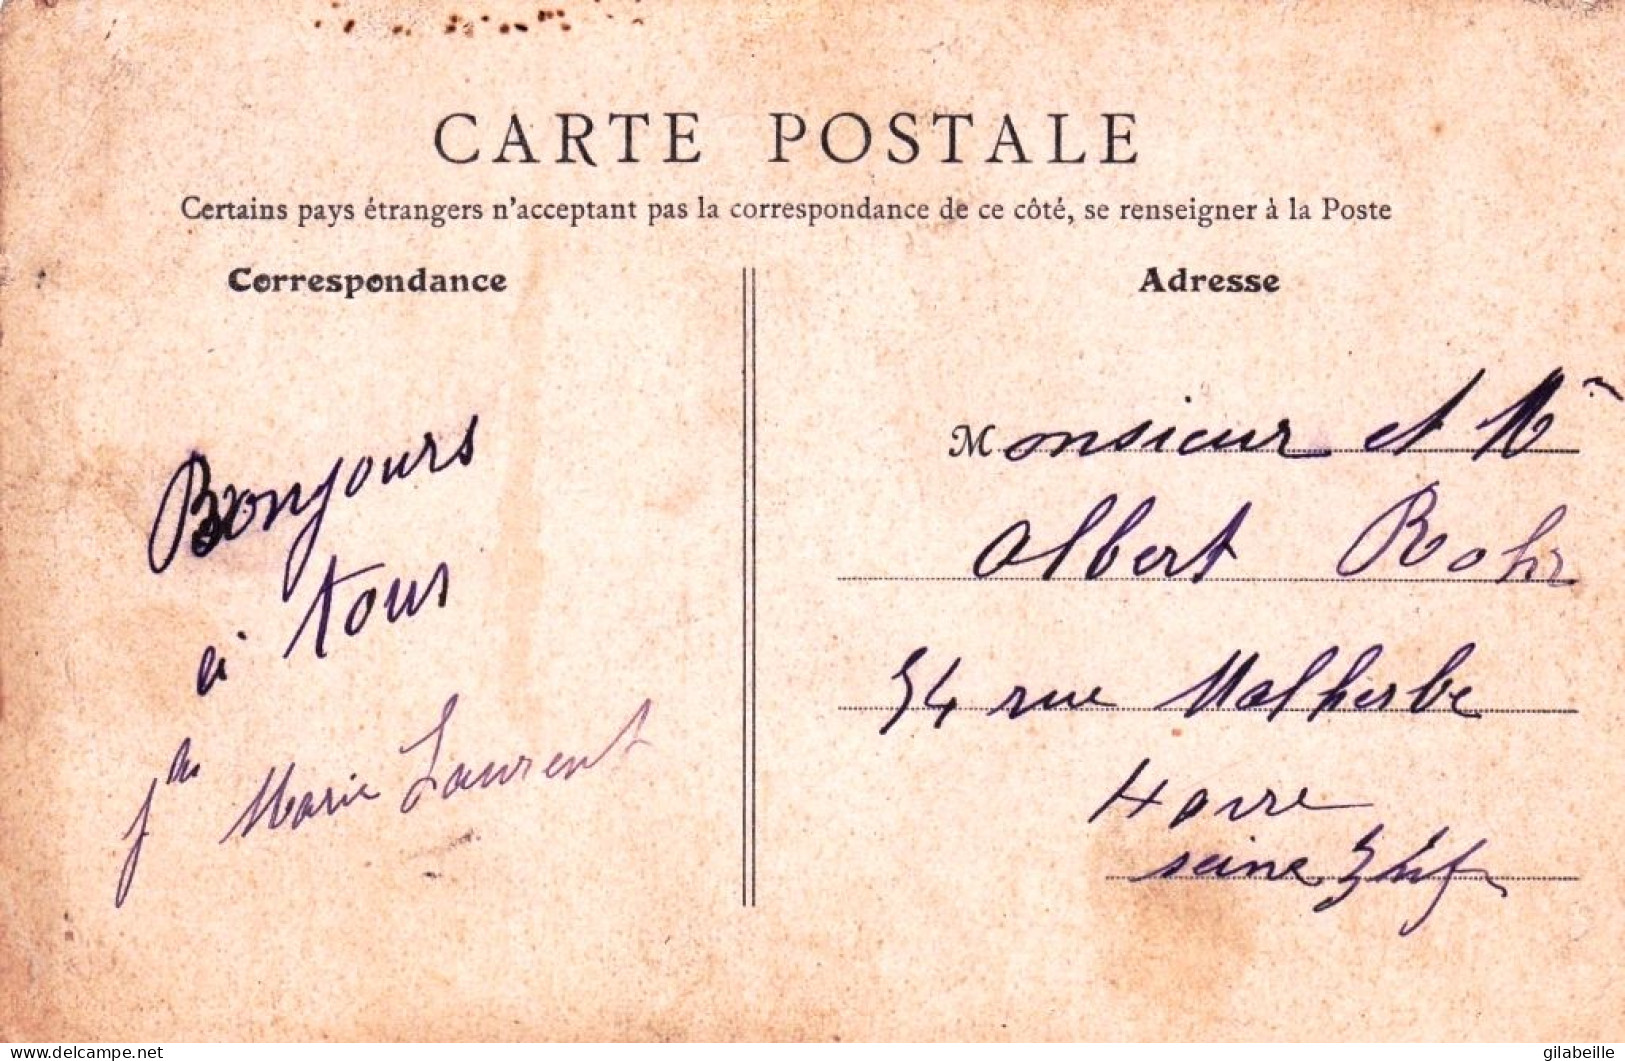 CARTE POSTALE
Certains pays étrangers n'acceptant pas la correspondance de ce côté, se renseigner à la Poste
Correspondance
Adresse
Bonjours
à tous
Marie Laurent
Monsieur et Mme
Albert Rohr
54 rue Malherbe
Havre
Seine Inf
delcampe.net
gilabeille